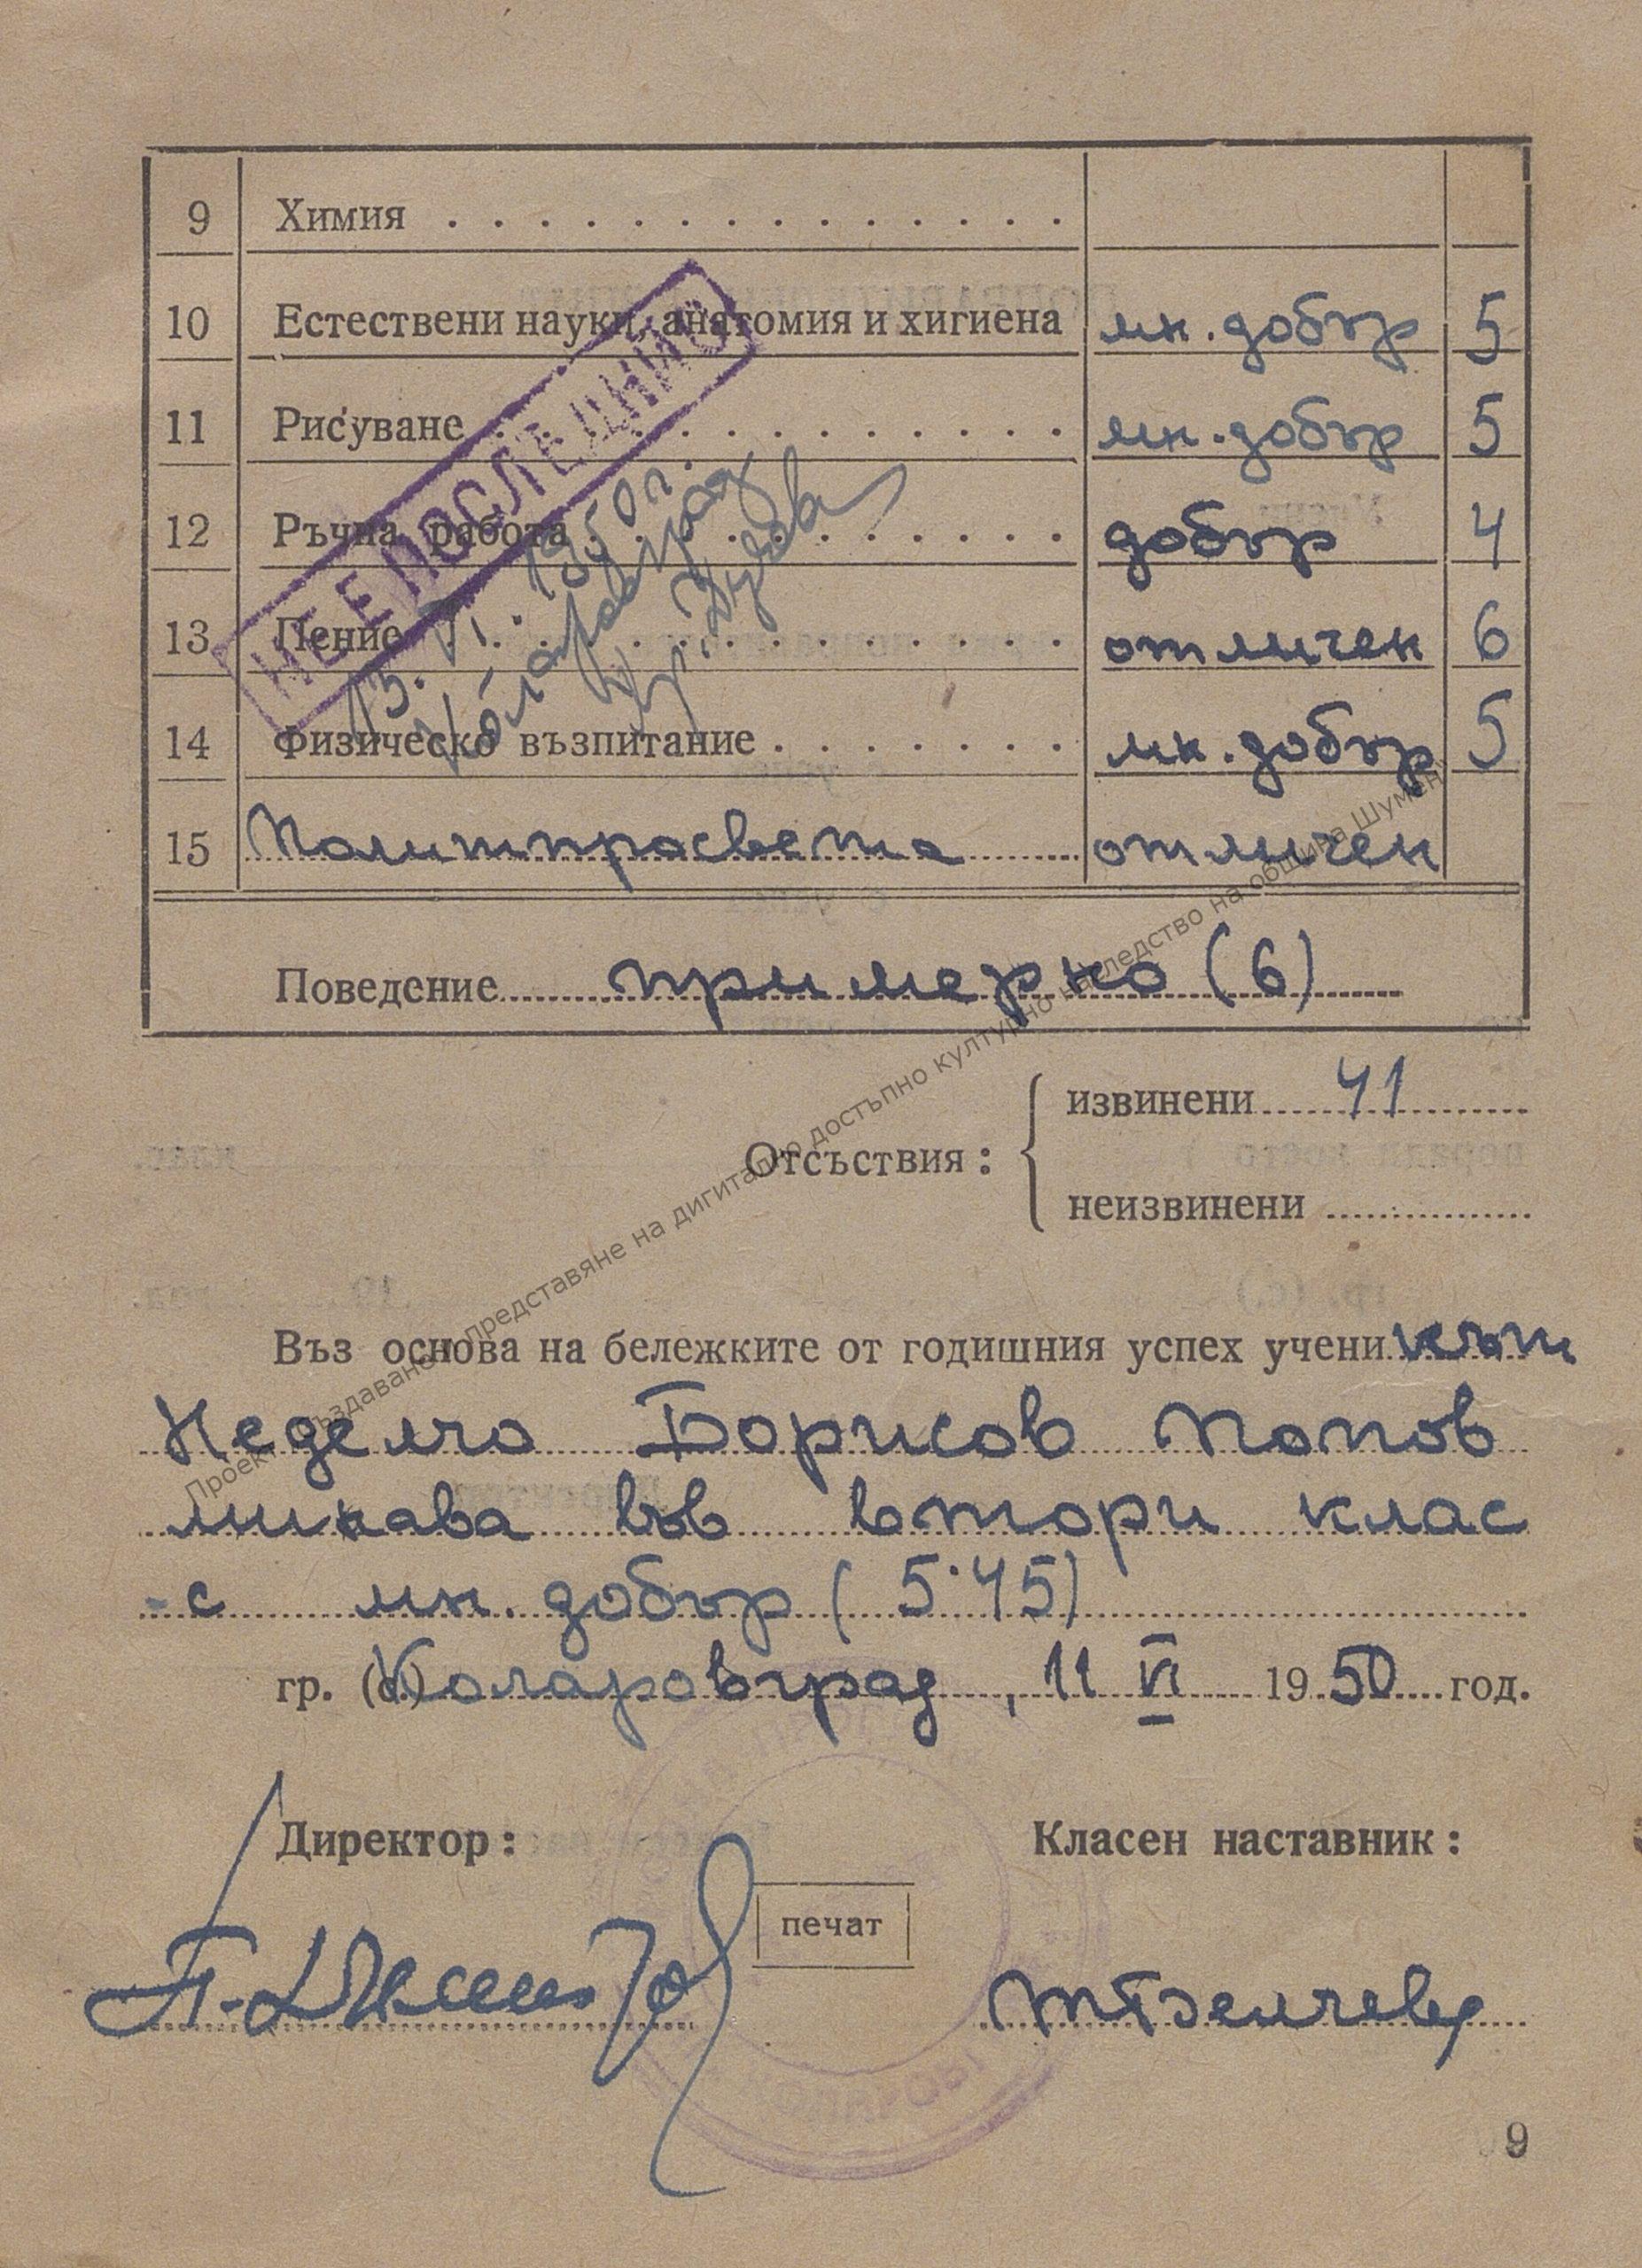 9 Химия . . . . . . . . . . . . . .
10 Естествени науки, анатомия и хигиена мн. добър 5
11 Рисуване . . . . . . . . . . . . . мн. добър 5
12 Ръчна работа . . . . . . . . . . . добър 4
13 Пение . . . . . . . . . . . . . . отличен 6
14 Физическо възпитание . . . . . . . мн. добър 5
15 Политпросвета отличен
НЕ Е ПОСЛЕДНИО
13. VI. 1950 г.
Коларовград
Поведение примерно (6)
Отсъствия:
извинени 41
неизвинени
Въз основа на бележките от годишния успех ученикът
Неделчо Борисов Попов
минава във втори клас
-с мн. добър (5·45)
гр. (с.) Коларовград, 11 VI 1950 год.
Директор: Класен наставник:
печат
9
Проект Създаване и представяне на дигитално достъпно културно наследство на община Шумен